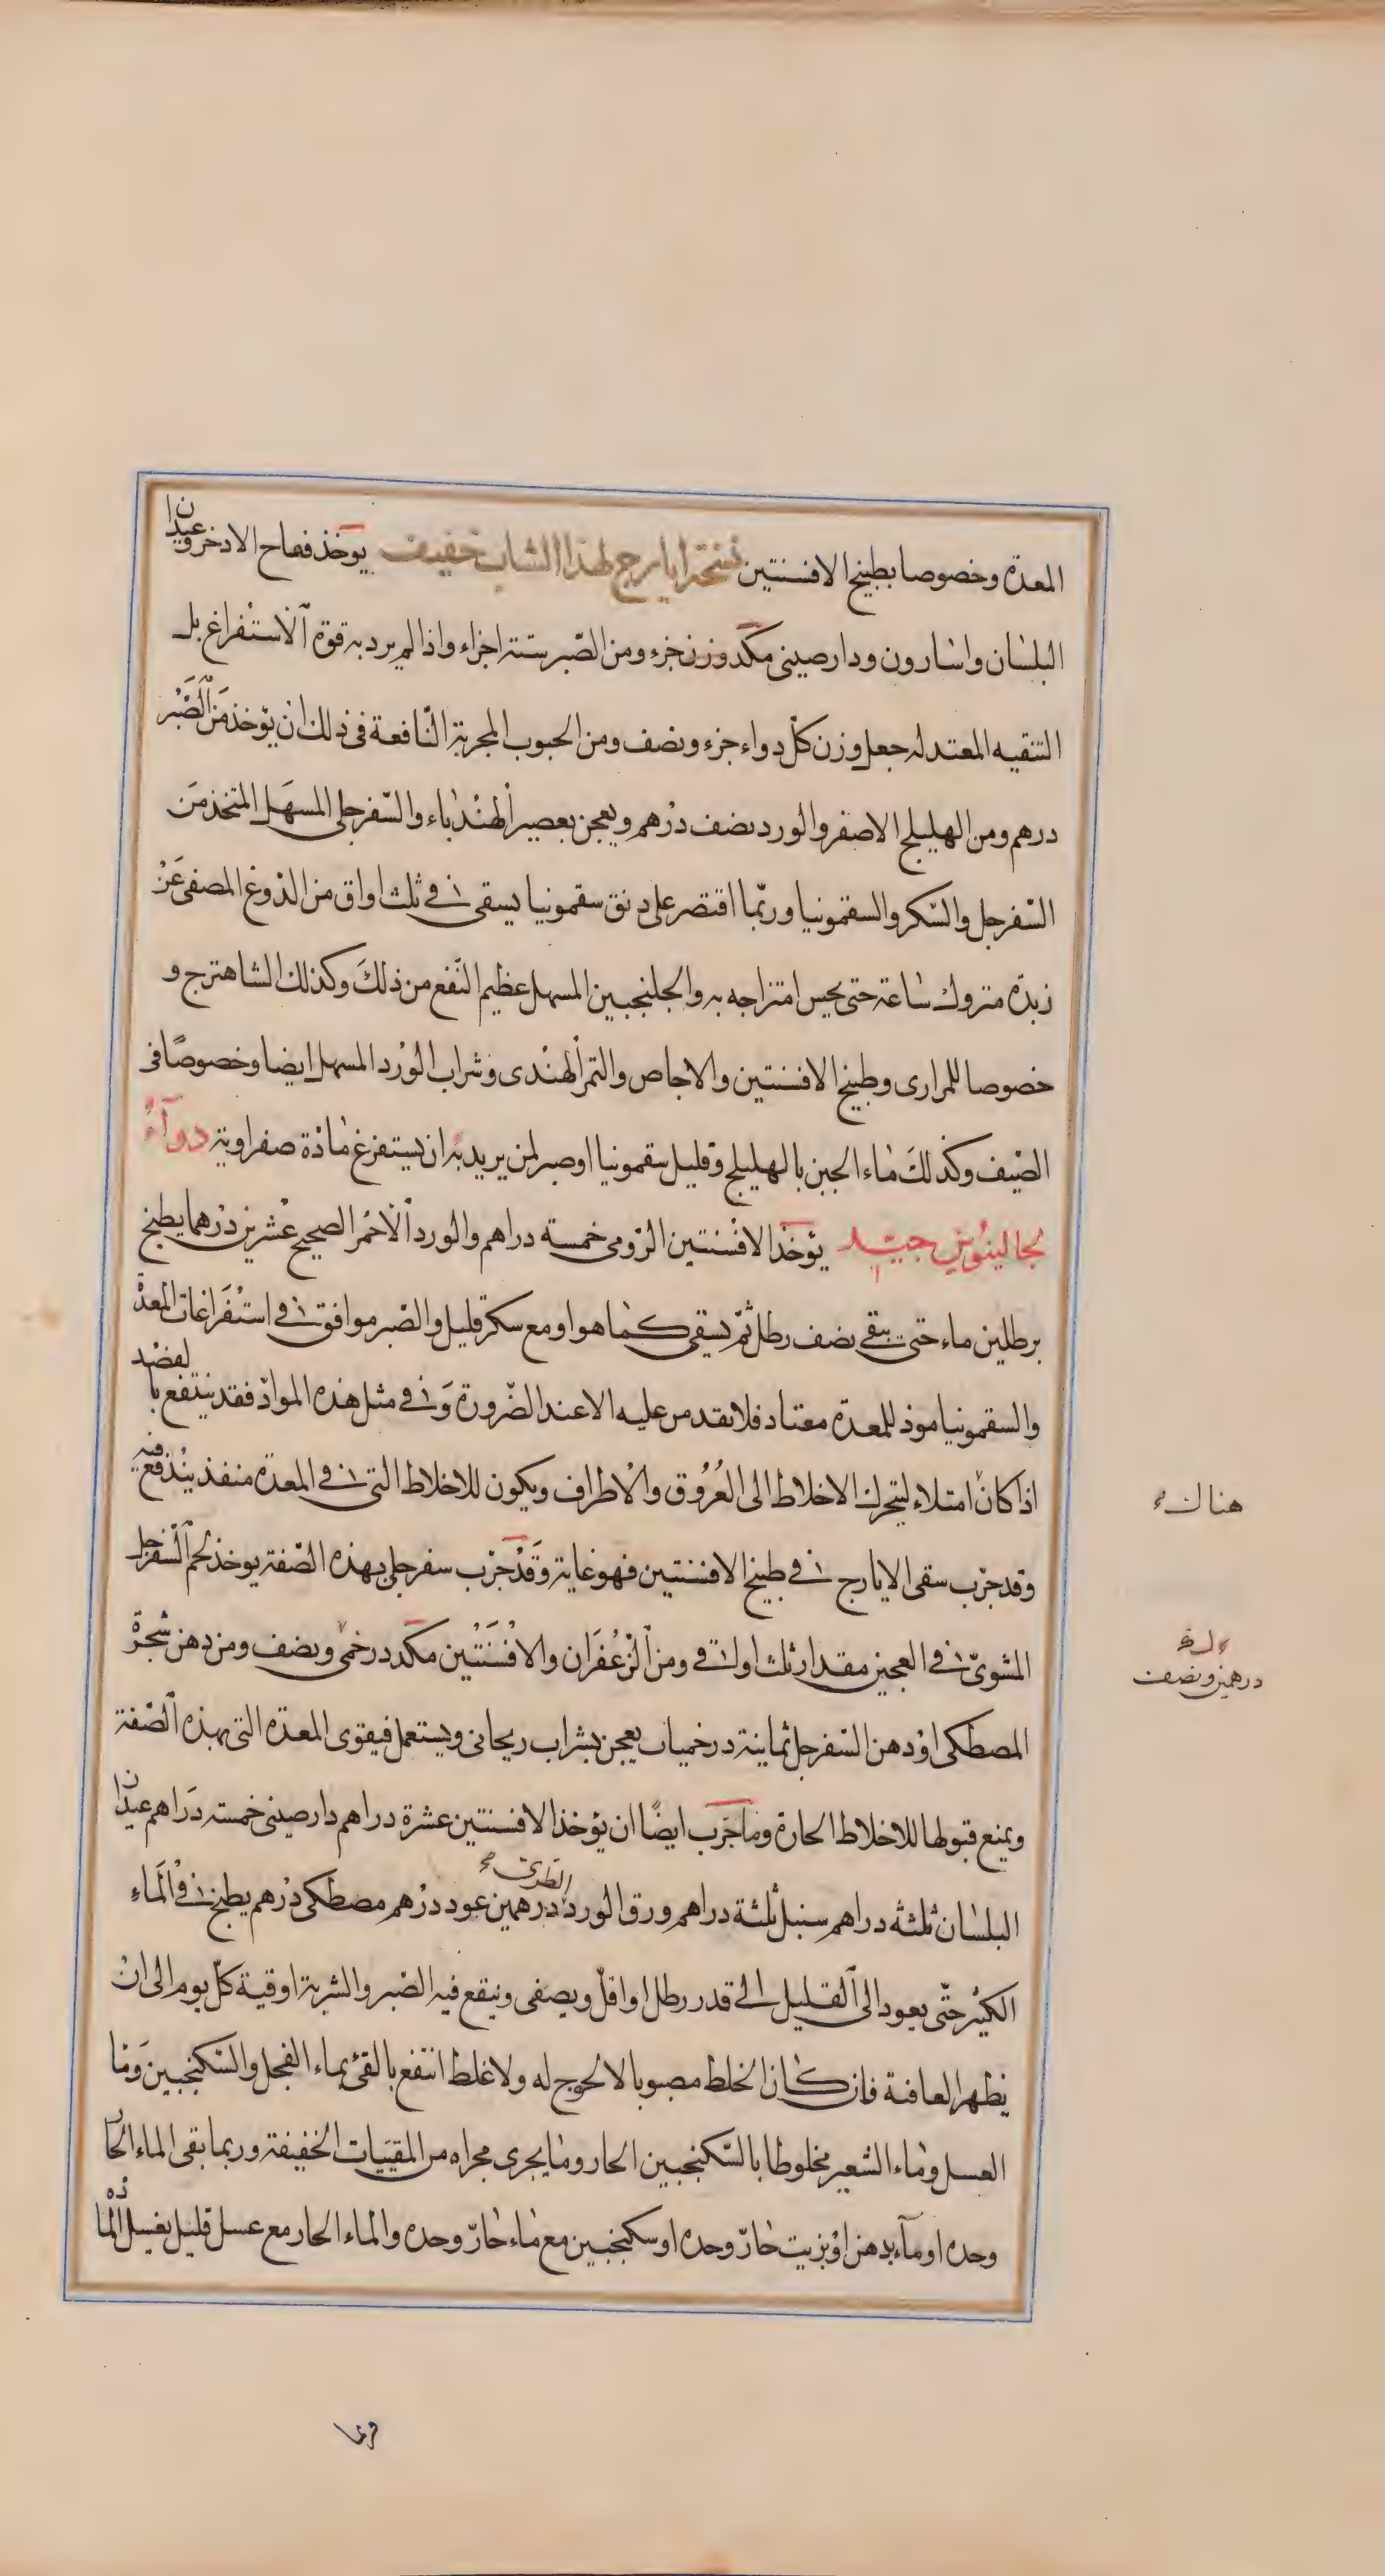 المعدة وخصوصا بطبيخ الافسنتين نسخة ايارج لهذا الشاب خفيف يوخذ فقاح الاذخر وعيدان
البلسان واسارون ودارصينى مكد وزن جزء ومن الصّبر ستة اجزاء واذا لم يرد به قوة الاستفراغ بل
التنقيه المعتدله جعل وزن كلّ دواء جزء ونصف ومن الحبوب المجربة النّافعة فى ذلك ان يؤخذ من الصّبر
درهم ومن الهليلج الاصفر والورد نصف درهم ويعجن بعصير الهندباء والسّفرجلى المسهل المتخذ من
السّفرجل والسّكر والسقمونيا وربّما اقتصر على دنق سقمونيا يسقى فى ثلث اواق من الدّوغ المصفى عن
زبدة متروك ساعة حتى يحس امتزاجه به والجلنجبين المسهل عظيم النّفع من ذلك وكذلك الشاهترج و
خصوصا للمرارى وطبيخ الافسنتين والاجاص والتمر الهندى وشراب الورد المسهل ايضا وخصوصًا فى
الصّيف وكذلك ماء الجبن بالهليلج وقليل سقمونيا او صبر لمن يريد به ان يستفرغ مادّة صفراوية دوآء
لجالينوس جيّد يؤخذ الافسنتين الرّومى خمسة دراهم والورد الاحمر الصحيح عشرين درهما يطبخ
برطلين ماء حتى يبقى نصف رطل ثمّ يسقى كما هو او مع سكر قليل والصّبر موافق فى استفراغات المعدة
والسقمونيا موذ للمعدة معتاد فلا تقدمن عليه الا عند الضّرورة وفى مثل هذه الموادّ فقد ينتفع بالفصد
اذا كان امتلاء ليتحرك الاخلاط الى العُرُوق والاطراف ويكون للاخلاط التى فى المعدة منفذ يندفع فيه
هناك
وقد جرّب سقى الايارج فى طبيخ الافسنتين فهو غاية وقد جرّب سفرجلى بهذه الصّفة يوخذ لحم السّفرجل
المشوىّ فى العجين مقدار ثلث اواقى ومن الزّعفران والافسنتين مكد درخمى ونصف ومن دهن شجرة
درهمين ونصف
المصطكى او دهن السّفرجل ثمانية درخميات يعجن بشراب ريحانى ويستعمل فيقوى المعدة التى بهذه الصّفة
ويمنع قبولها للاخلاط الحارة ومما جرّب ايضًا ان يؤخذ الافسنتين عشرة دراهم دارصينى خمسة دراهم عيدان
البلسان ثلثة دراهم سنبل ثلثة دراهم ورق الورد الطرى درهمين عود درهم مصطكى درهم يطبخ فى الماء
الكثير حتّى يعود الى القليل الى قدر رطل او اقلّ ويصفى وينقع فيه الصّبر والشربة اوقية كلّ يوم الى ان
يظهر العافية فان كان الخلط مصبوبا لا لحوج له ولا غلظ انتفع بالقئ بماء الفجل والسّكنجبين وما
العسل وماء الشعير مخلوطا بالسّكنجبين الحار وما يجرى مجراه من المقيّيات الخفيفة وربما بقى الماء الحار
وحده او مآء بدهن او بزيت حارّ وحده او سكنجبين مع ماء حارّ وحده والماء الحار مع عسل قليل يغسل المادّه